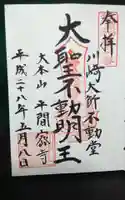 奉拝
川崎大師不動堂
大聖不動明王
大本山 平間寺
平成二十八年五月八日